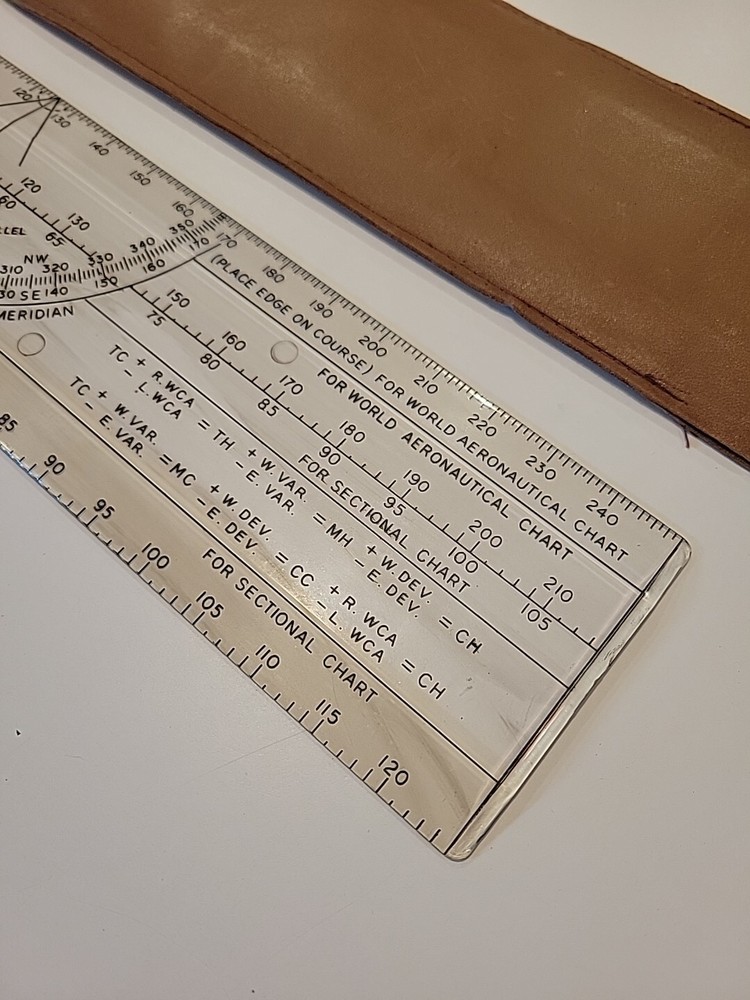 120 130 140 150 160 170 180 190 200 210 220 230 240
(PLACE EDGE ON COURSE) FOR WORLD AERONAUTICAL CHART
FOR WORLD AERONAUTICAL CHART
120 130 150 160 170 180 190 200 210
60 65 75 80 85 90 95 100 105
FOR SECTIONAL CHART
NW
310 320 330 340 350
30 SE 140 150 160 170
MERIDIAN
TC + R. WCA = TH + W. VAR. = MH + W. DEV. = CH
− L. WCA − E. VAR. − E. DEV.
TC + W. VAR. = MC + W. DEV. = CC + R. WCA = CH
− E. VAR. − E. DEV. − L. WCA
FOR SECTIONAL CHART
85 90 95 100 105 110 115 120